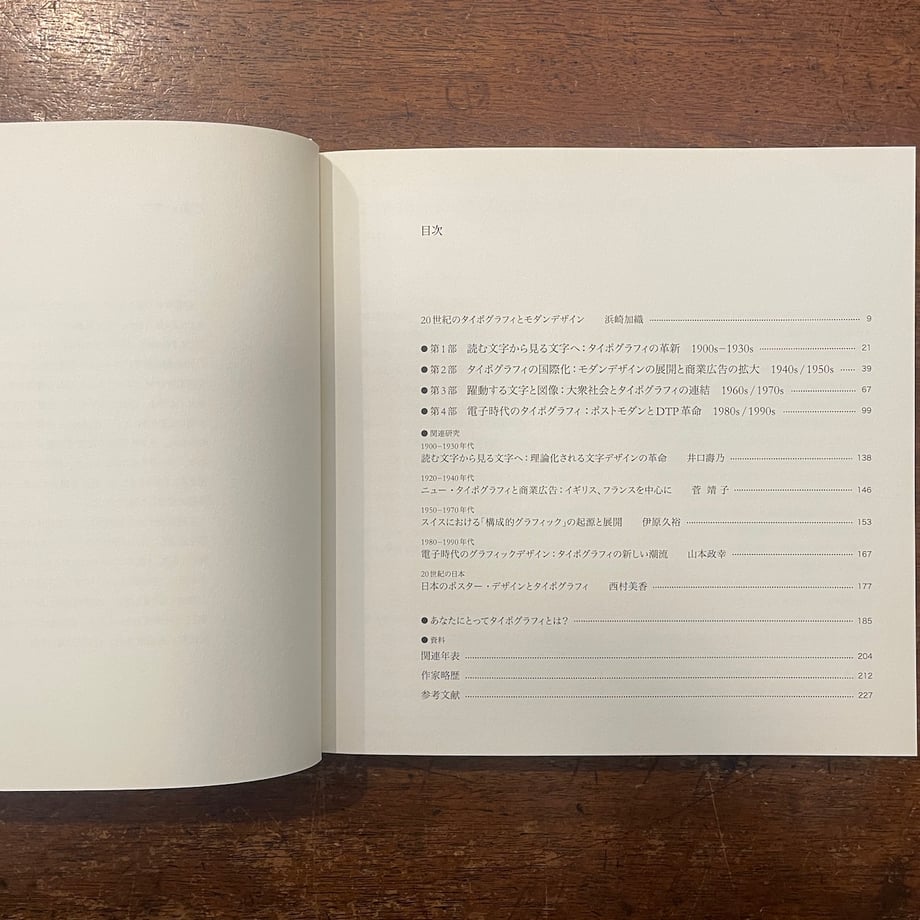 目次
20世紀のタイポグラフィとモダンデザイン 浜崎加織 9
●第1部 読む文字から見る文字へ：タイポグラフィの革新 1900s−1930s 21
●第2部 タイポグラフィの国際化：モダンデザインの展開と商業広告の拡大 1940s/1950s 39
●第3部 躍動する文字と図像：大衆社会とタイポグラフィの連結 1960s/1970s 67
●第4部 電子時代のタイポグラフィ：ポストモダンとDTP革命 1980s/1990s 99
●関連研究
1900−1930年代
読む文字から見る文字へ：理論化される文字デザインの革命 井口壽乃 138
1920−1940年代
ニュー・タイポグラフィと商業広告：イギリス、フランスを中心に 菅 靖子 146
1950−1970年代
スイスにおける「構成的グラフィック」の起源と展開 伊原久裕 153
1980−1990年代
電子時代のグラフィックデザイン：タイポグラフィの新しい潮流 山本政幸 167
20世紀の日本
日本のポスター・デザインとタイポグラフィ 西村美香 177
●あなたにとってタイポグラフィとは？ 185
●資料
関連年表 204
作家略歴 212
参考文献 227